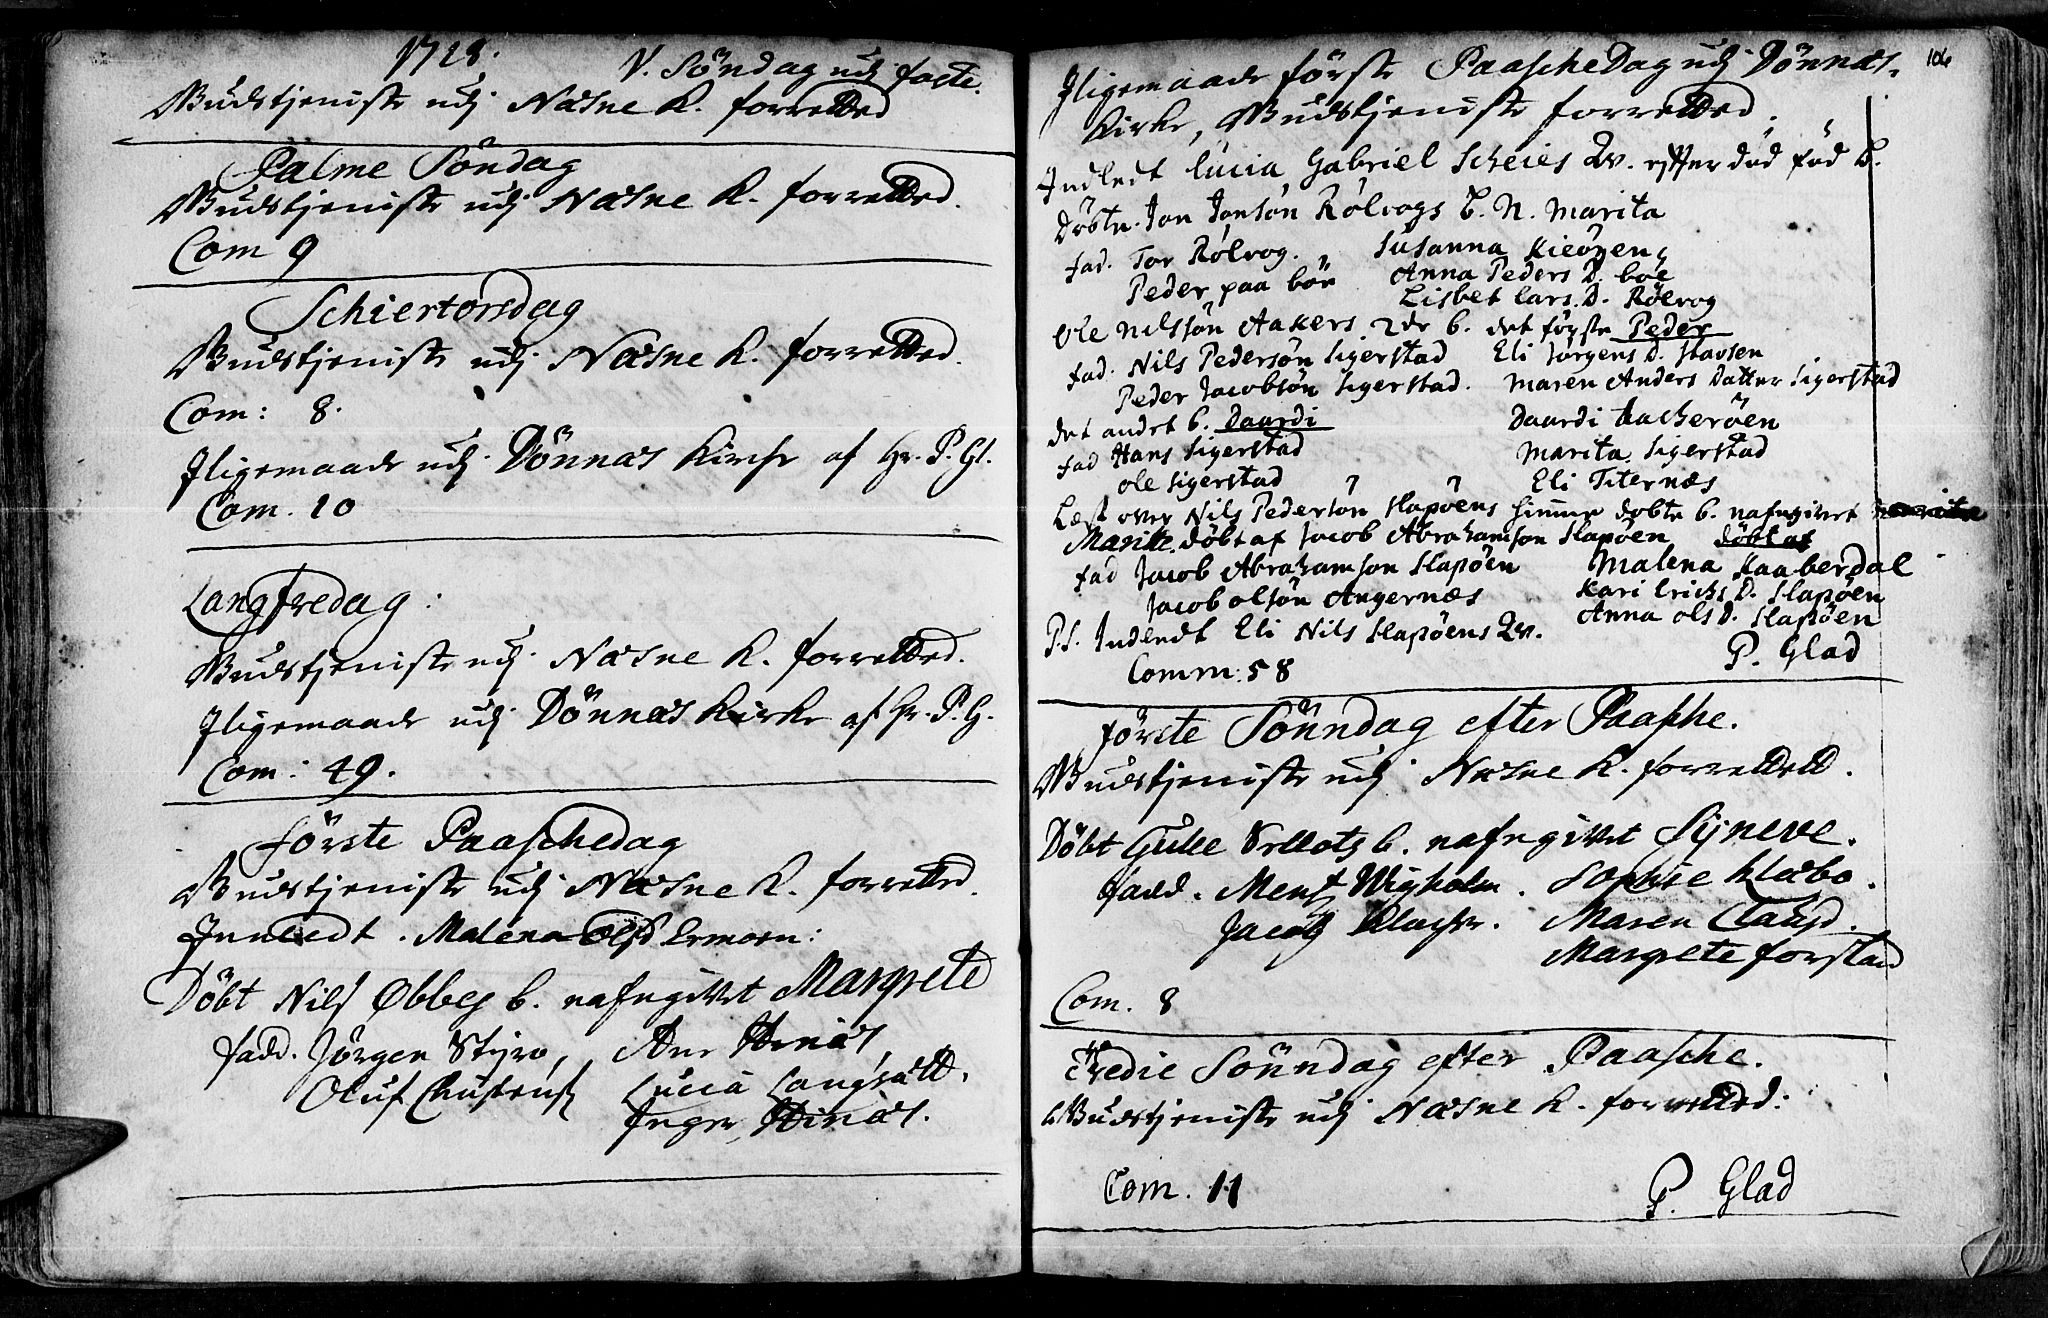 1728.
V. Söndag udj faste.
Gudstjeniste udj Næsne K. forretted
Palme Söndag
Gudstjeniste udj Næsne K. forretted.
Com 9
Schiertorsdag
Gudstjeniste udj Næsne K. forretted.
Com: 8.
Iligemaade udj Dönnæs Kirche af Hr. P. Gl.
Com. 10
Langfredag:
Gudstjeniste udj Næsne K. forretted.
Iligemaade udj Dönnæs Kirke af Hr. P. G.
Com: 49.
Förste Paaschedag
Gudstjeniste udj Næsne K. forretted.
Innledt. Malena Olsd
Döbt Nils b. nafngivet Margrete
fadd. Jörgen Styro, Ane
Oluf Lucia
Inger
106
Iligemaade förste PaascheDag udj Dönnæs
Kirke, Gudstjeniste forretted.
Indledt Lucia Gabriel Scheies Qv. efter död föd b.
Döbte Jon Jonsön Rölvogs b. N. Marita
fad. Tor Rölvog. Susanna Kieöyen
Peder paa böe Anna Peders D. böe
Lisbet Lars D. Rölvog
Ole Nilssön Aakers 2de b. det förste Peder
fad. Nils Pedersön Sigerstad Eli Jörgens D. Stavsen
Peder Jacobsön Sigerstad. Maren Anders Datter Sigerstad
det andet b. Daardi Daardi
fad Hans Sigerstad Marita Sigerstad
Ole Sigerstad Eli Titernæs
Læst over Nils Pedersön Slapöens hiemme döbte b. nafngivet
Marite. döbt af Jacob Abrahamsön Slapöen döbt af
fad Jacob Abrahamsön Slapöen Malena Kaaberdal
Jacob Olsön Angernæs Kari Erichs D. Slapöen
Anna Ols D. Slapöen
P.S. Indledt Eli Nils Slapöens Qv.
Comm: 58 P. Glad
Förste Sönndag efter Paasche.
Gudstjeniste udj Næsne K. forretted.
Döbt b. nafngivet Syneve.
fadd. Sophie Klæbo.
Jacob Maren Clausd.
Margrete forstad
Com. 8
Tredie Sönndag efter Paasche.
Gudstjeniste udj Næsne K. forretted:
Com. 11
P. Glad